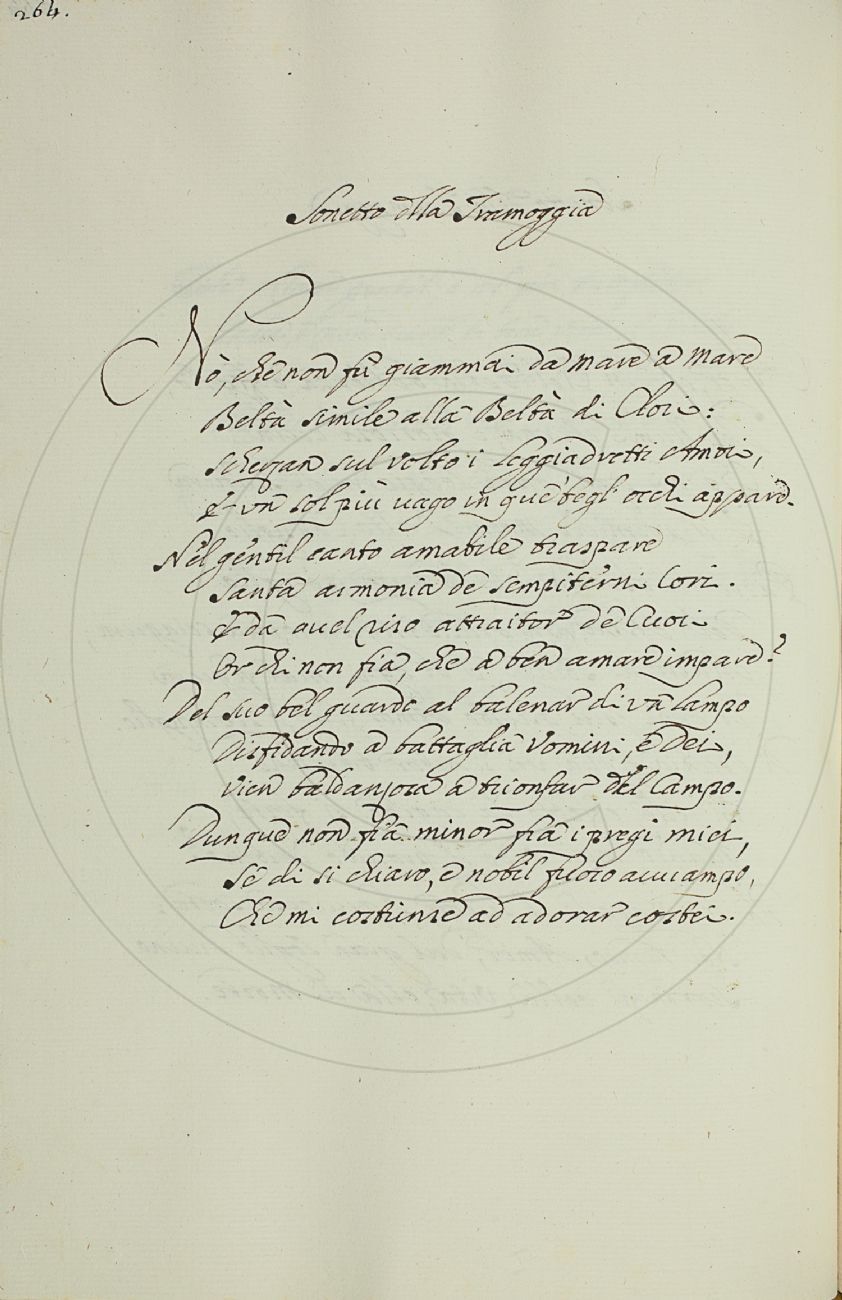 264.
Sonetto della Tramoggia
Nò, che non fù giammai da Mare a Mare
Beltà simile alla Beltà di Clori:
scherzan sul volto i leggiadretti Amori,
E vn sol più vago in que' begl' occhi appare.
Nel gentil canto amabile traspare
santa armonia de sempiterni Cori.
E da quel riso attraitor de Cuori
Or chi non fia, che a ben amare impare?
Del suo bel guardo al balenar di vn lampo
Disfidando a battaglia Vomini, e Dei,
vien baldanzosa a trionfar del Campo.
Dunque non fia minor fra i pregi miei,
se di si chiaro, e nobil fuoco avvampo,
Che mi costrinse ad adorar costei.